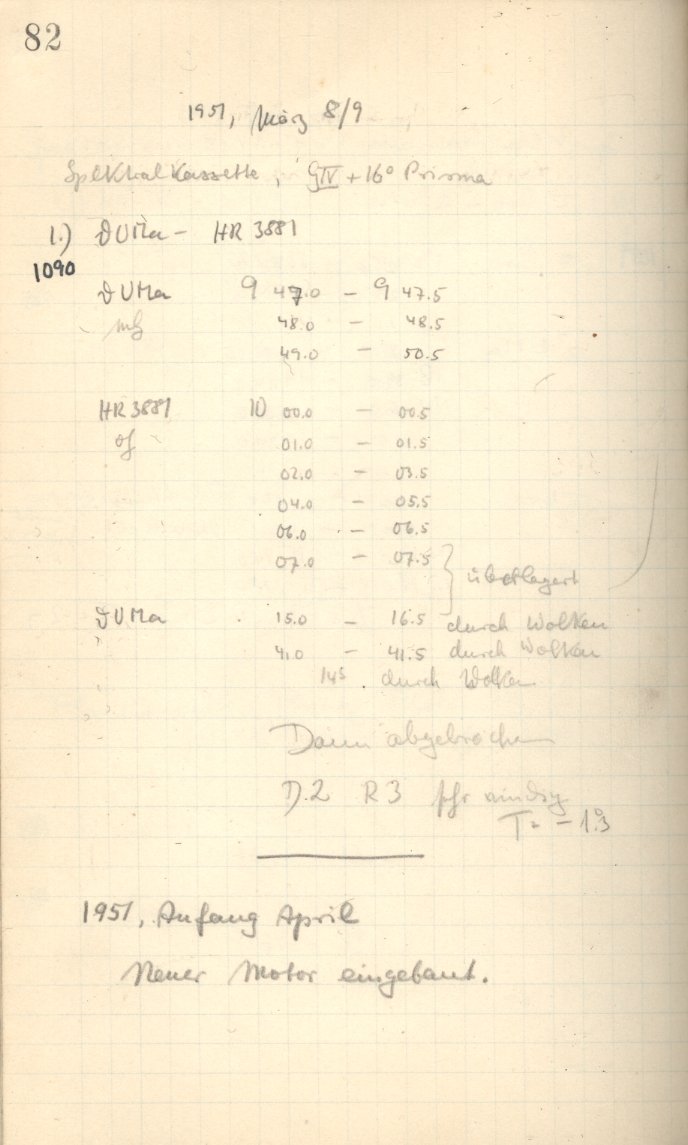 82
1951, März 8/9
Spektralkassette, GIV + 16° Prisma
1.) ϑ UMa - HR 3881
1090
ϑ UMa 9 47.0 - 9 47.5
48.0 - 48.5
49.0 - 50.5
HR 3881 10 00.0 - 00.5
of 01.0 - 01.5
02.0 - 03.5
04.0 - 05.5
06.0 - 06.5
07.0 - 07.5 } überlagert
ϑ UMa 15.0 - 16.5 durch Wolken
41.0 - 41.5 durch Wolken
14s durch Wolken
Dann abgebrochen
D.2 R 3 sehr windig
T = - 1°.3
1951, Anfang April
Neuer Motor eingebaut.